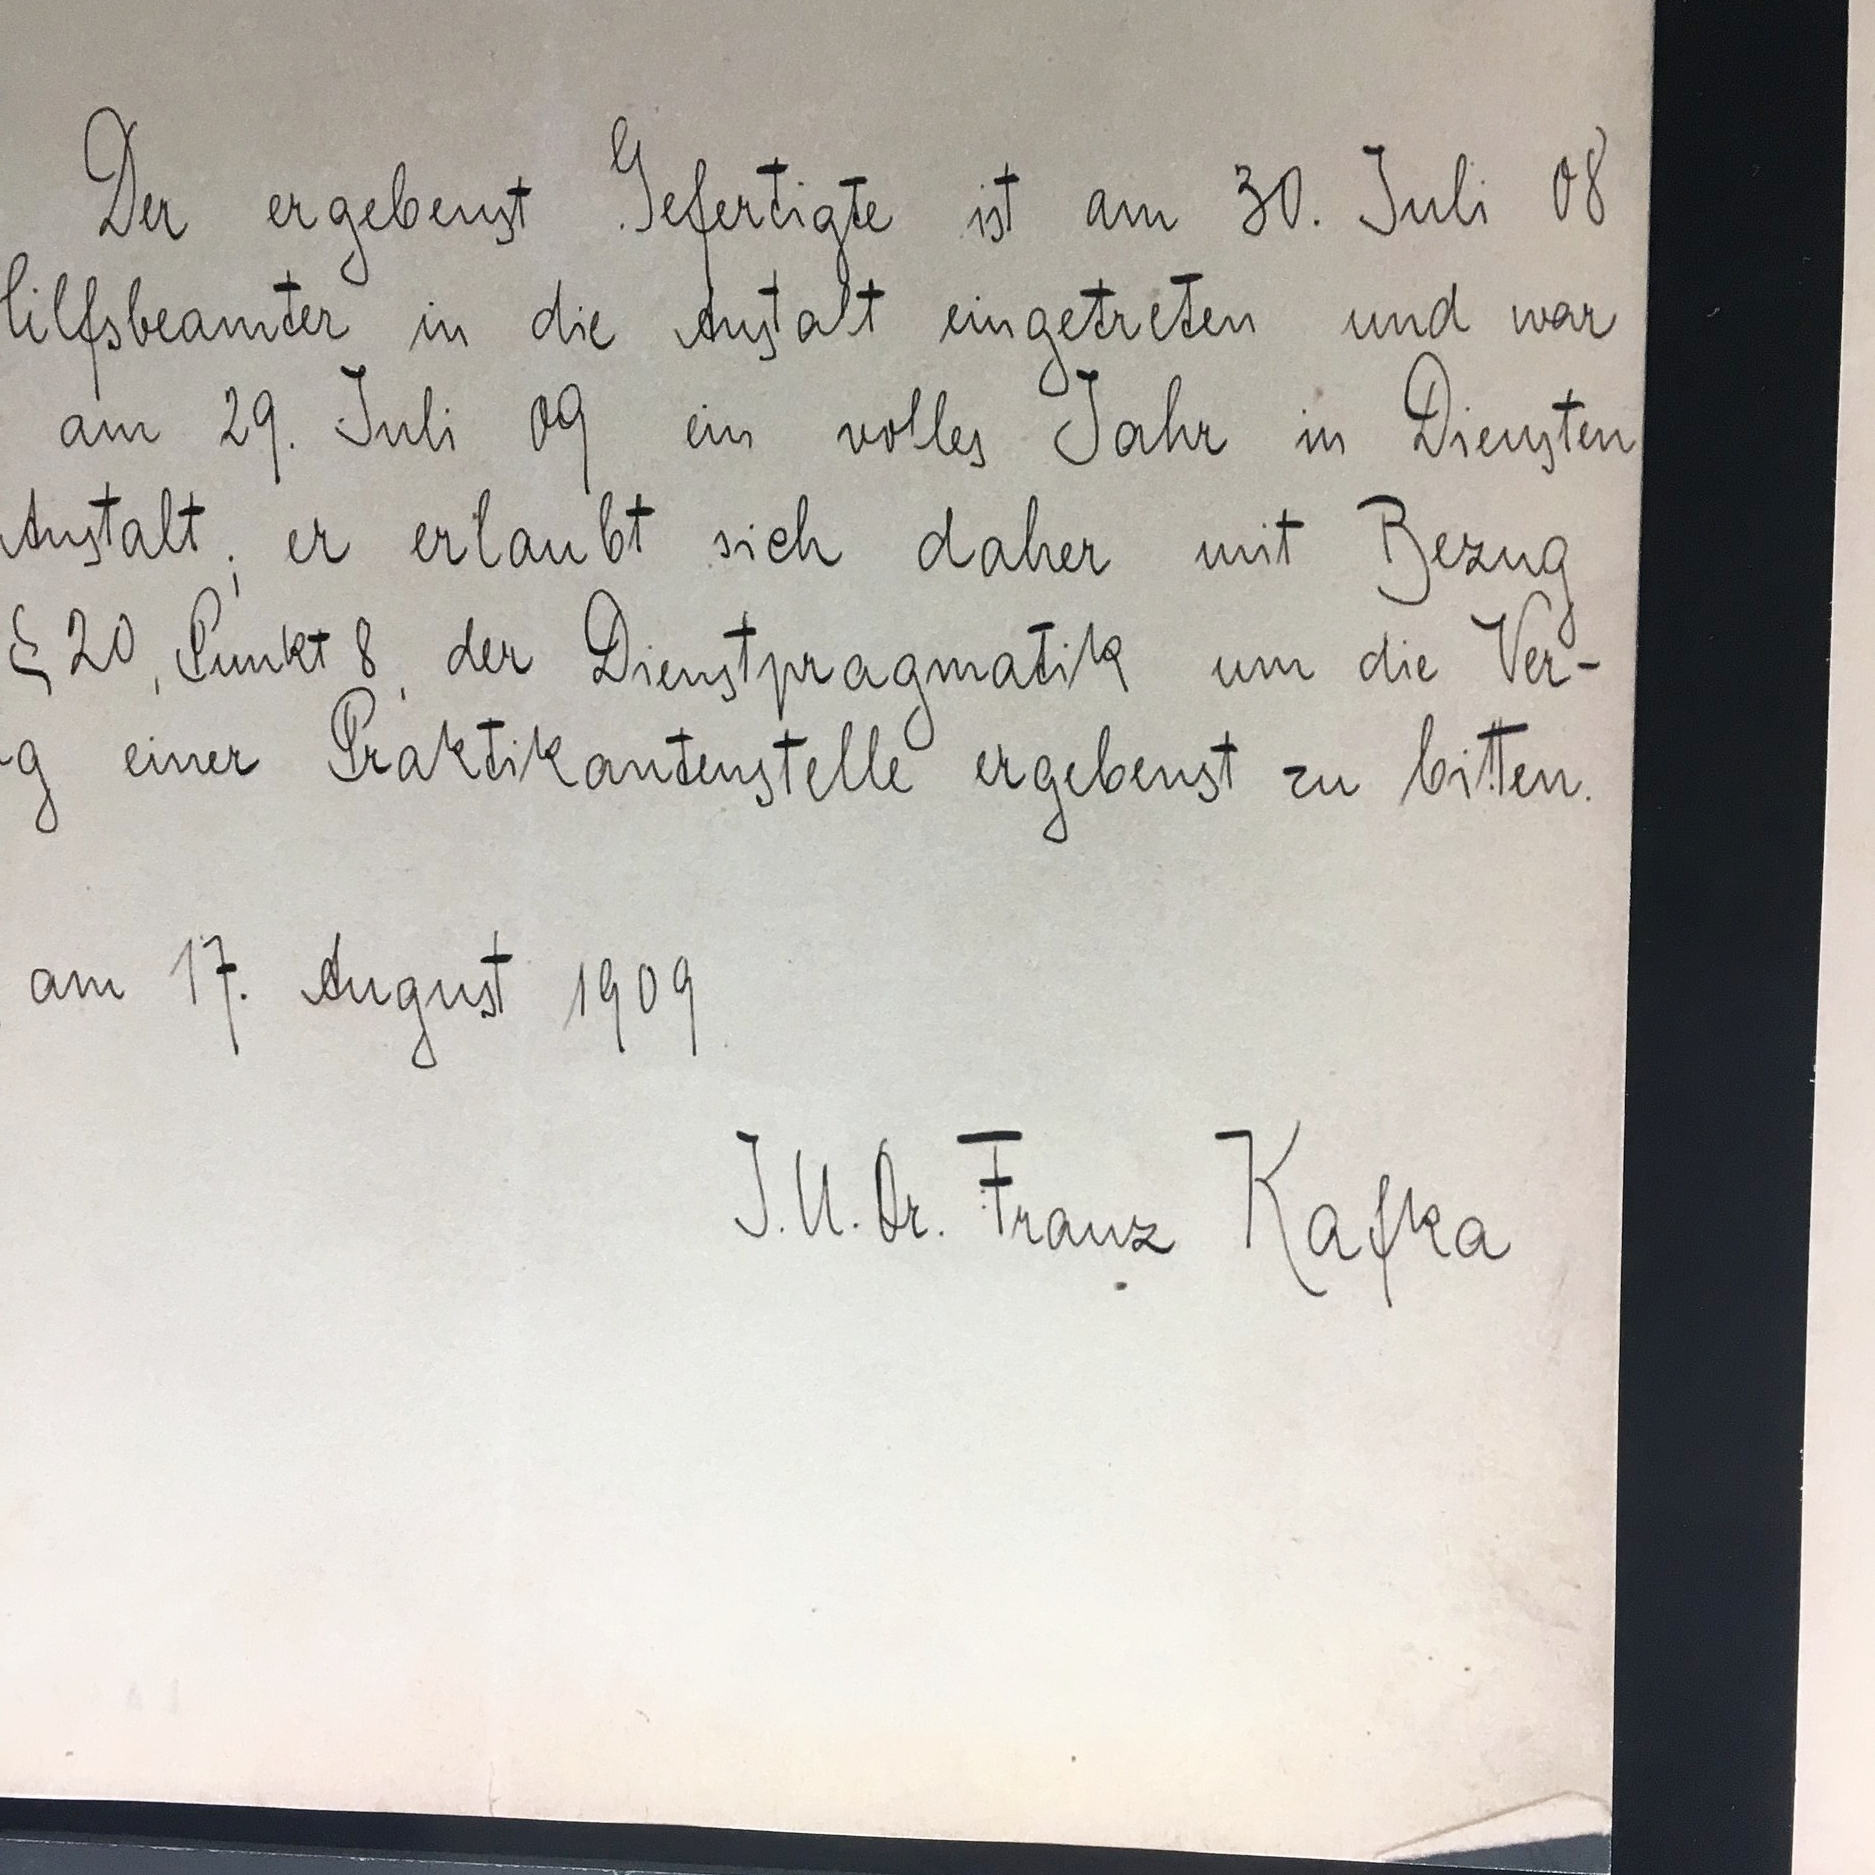 Der ergebenst Gefertigte ist am 30. Juli 08
Hilfsbeamter in die Anstalt eingetreten und war
am 29. Juli 09 ein volles Jahr in Diensten
Anstalt; er erlaubt sich daher mit Bezug
§ 20, Punkt 8, der Dienstpragmatik um die Ver-
g einer Praktikantenstelle ergebenst zu bitten.
am 17. August 1909
J.U.Dr. Franz Kafka